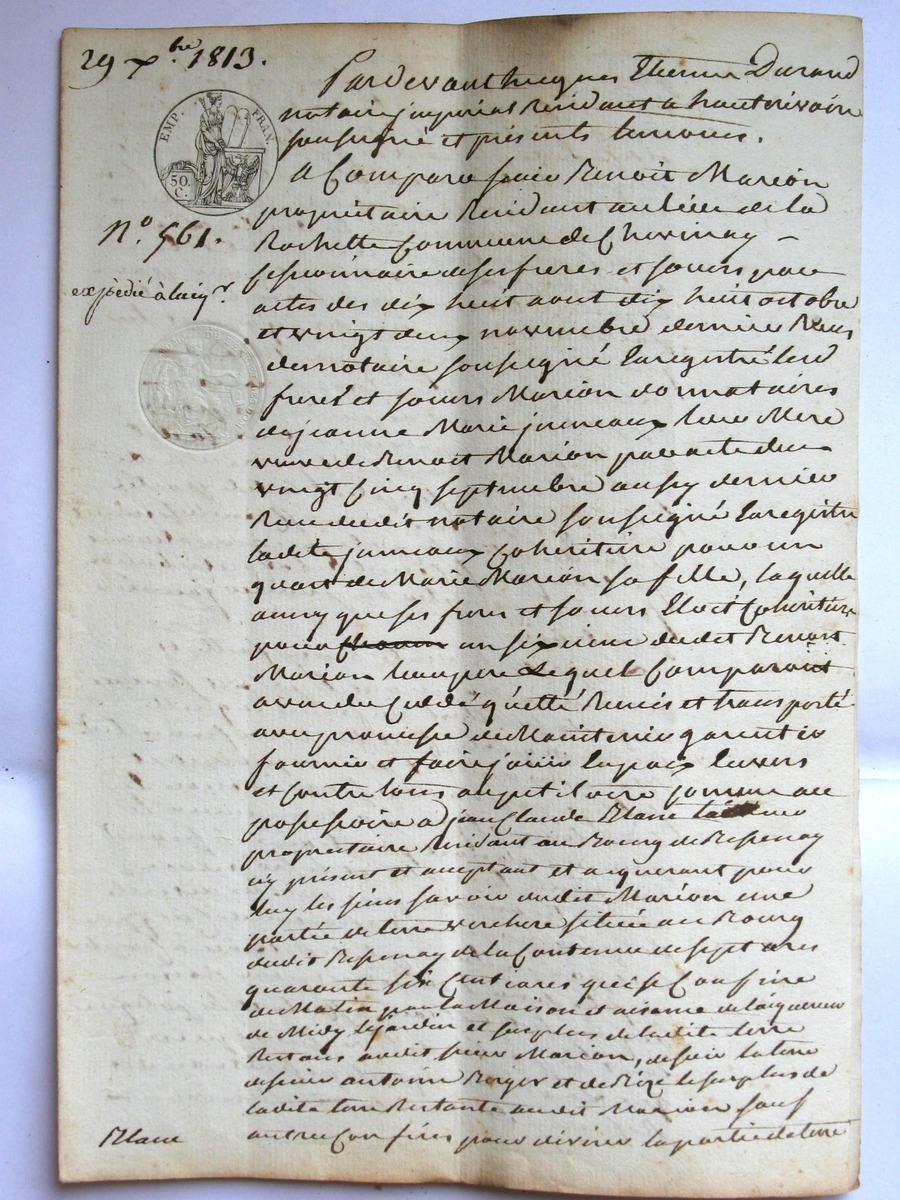 29 Xbre 1813.
EMP. FRCN.
50. C.
N° 561.
expédié à lacqr
Pardevant Jacques Etienne Durand
notaire imperial Residant a hauterivoire
soussigné et présents temoins.
A Comparu sieur Benoit Marion
propriétaire Residant au lieu de la
Rochette Commune de Chevinay –
Cessionnaire de ses freres et soeurs par
actes des dix huit aout dix huit octobre
et vingt deux novembre dernier Reçus
du notaire soussigné Enregistré lesd
freres et soeurs Marion donnataires
de jeanne Marie jumeaux leur Mere
veuve de Benoit Marion par acte du
vingt Cinq septembre aussy dernier
Reçu dudit notaire soussigné Enregistré
ladite jumeaux Coheritiere pour un
quart de Marie Marion sa fille, laquelle
ainsy que ses freres et soeurs Etoit Coheritiere
pour un sixieme dudit Benoit
Marion leur pere Lequel Comparant
a vendu Cedé quitté Remis et transporté
avec promesse de Maintenir garentir
fournir et faire jouir En paix Envers
et Contre tous au petitoire comme au
possessoire a jean Claude Blanc
propriétaire Residant au Bourg de
icy présent et acceptant et acquerant pour
luy les siens savoir dudit Marion une
partie de terre verchere située au Bourg
dudit de la Contenue de sept ares
quarante six Centiares qui se Confine
de Matin par la Maison et aisance de lacquereur
de Midy le jardin et surplus de ladite terre
Restans audit sieur Marion, de soir la terre
de sieur antoine et de Bize le surplus de
ladite terre Restante audit Marion sauf
autres Confins pour diviser la partie de terre
Blanc